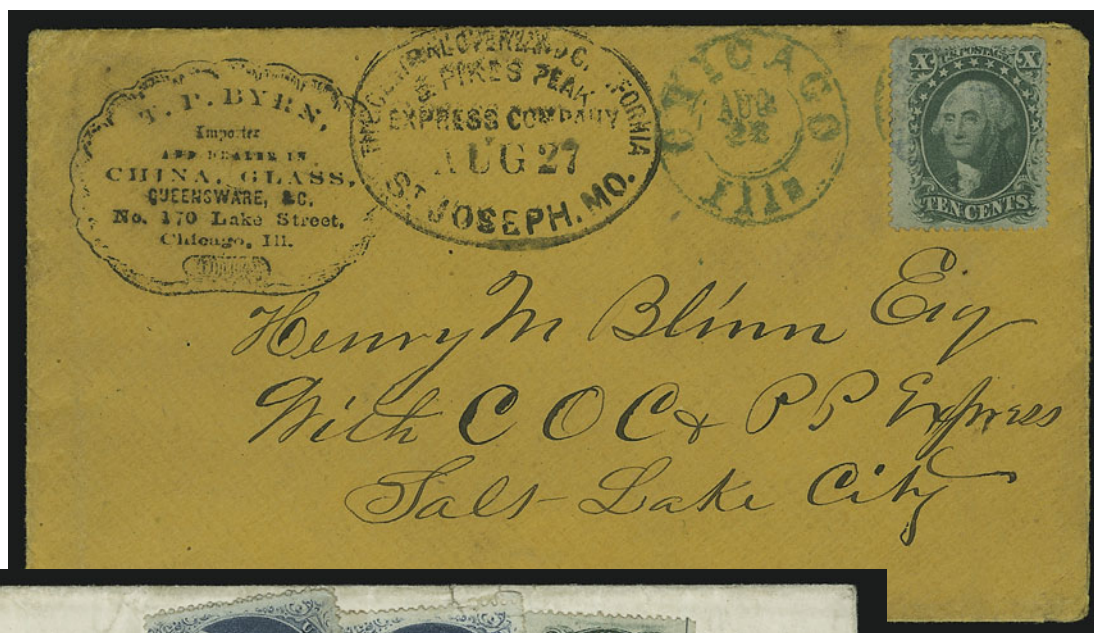 T. P. BYRN,
Importer
AND DEALER IN
CHINA, GLASS,
QUEENSWARE, &C.
No. 170 Lake Street,
Chicago, Ill.
THE CENTRAL OVERLAND CALIFORNIA
& PIKES PEAK
EXPRESS COMPANY
AUG 27
ST. JOSEPH. MO.
CHICAGO
AUG
22
Ill's
U.S. POSTAGE
X X
TEN CENTS
Henry M Blinn Esq
With C O C & P P Express
Salt Lake City